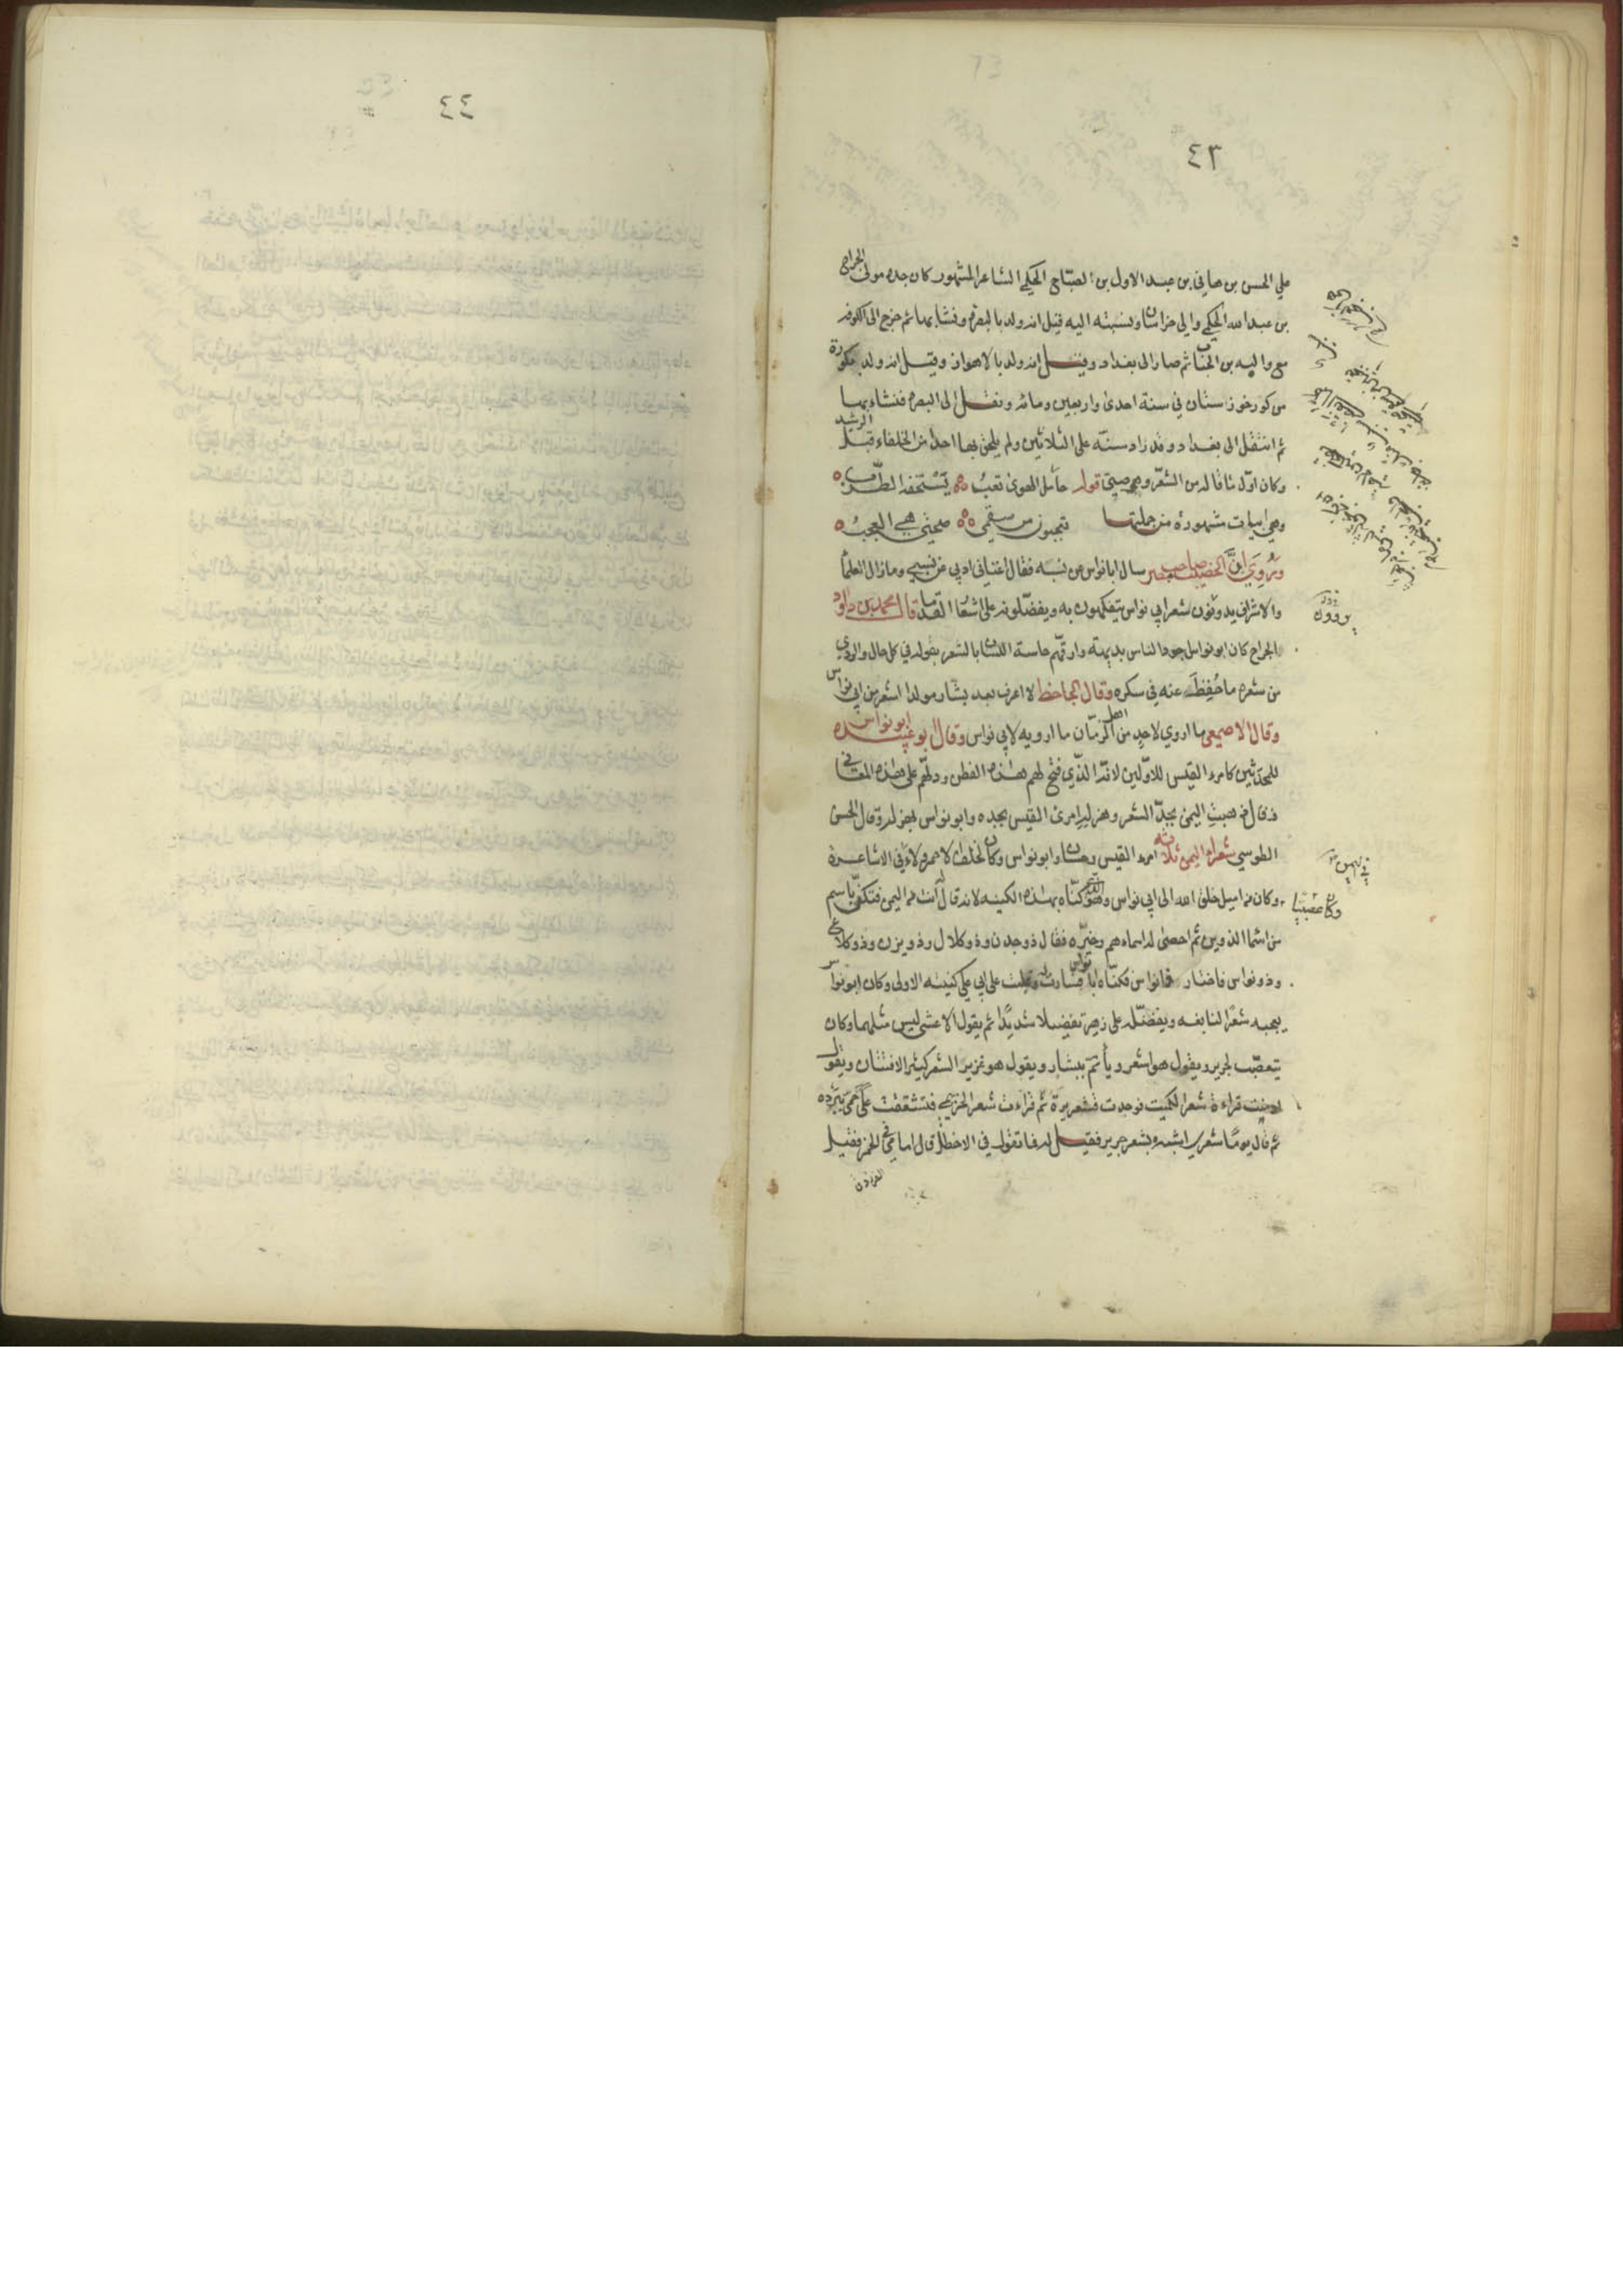 ٤٤
٤٣
علي الحسن بن هاني بن عبد الاول بن الصباح الحكمي الشاعر المشهور كان جده مولى الجراح
بن عبد الله الحكمي والي خراسان ونسبته اليه قيل انه ولد بالبصرة ونشا بها ثم خرج الى الكوفه
مع والبه بن الحباب ثم صار الى بغداد وقيل انه ولد بالاهواز وقيل انه ولد بكورة
من كور خوزستان في سنة احدى واربعين ومائه ونقل الى البصره فنشاء بها
ثم انتقل الى بغداد وقد زاد سنّه على الثلاثين ولم يلحق بها احد من الخلفاء قبل الرشيد
وكان اوّل ما قاله من الشعر وهو صبيّ قوله حامل الهوى تعبُ يَسْتخفه الطّربُ
وهي ابيات مشهورة من جملتها تعجبون من سقمي صحتي هي العجبُ
ورُوي انّ الخصيب صاحب مصر سال ابا نواس عن نسبه فقال اغناني ادبي عن نسبي وما زال العلمأ
والاشراف يروون شعر ابي نواس يتفكهون به ويفضّلونه على اشعار القدما قال محمد بن داود
الجراح كان ابو نواس اجود الناس بديهة وارقهم حاسة اللسان بالشعر يقوله في كل حال والردي
من شعره ما حُفِظَ عنه في سكره وقال الجاحظ لا اعرف بعد بشار مولدا اشعر من ابي نواس
وقال الاصمعي ما اروي لاحدٍ من اهل الزمان ما ارويه لابي نواس وقال ابو عبيده ابو نواس
للمحدثين كامرء القيس للاوّلين لانّه الذّي فتح لهم هذه الفطن ودلهّم على هذه المعاني
وقال ذهبتِ اليمن بجدّ الشعر وهزله امرئ القيس بجده وابو نواس بهزله وقال الحسن
الطوسي شعراء اليمن ثلاثه امرء القيس وحسان وابو نواس وكان خلف الاحمر ولاءه في الاشاعرة
وكان من اميل خلق الله الى ابي نواس وهو الذي كنّاه بهذه الكنيه لانه قال له انت من اليمن فتكنّى باسم
من اسما الذوين ثم احصى له اسماءهم وخيّره فقال ذو جدن وذو كلال وذو يزن وذو كلاع
وذو نواس فاختار ذا نواس فكنّاه ابا نواس فسارت له وغلبت على ابي علي كنيته الاولى وكان ابو نواس
يعجبه شعر النابغه ويفضّله على زهير تفضيلا شديدًا ثم يقول الاعشى ليس مثلهما وكان
يتعصّب لجرير ويقول هو اشعر ويأتمّ ببشار ويقول هو غزير الشعر كثير الافتنان ويقول
ادمنت قراءة شعر الكميت فوجدت قشعريرة ثم قراءت شعر الخزيمي فتشققت علي حمى تبرده
ثم قال يومًا شعري اشبه بشعر جرير فقيل له فما تقول في الاخطل قال امامي في الخمر فقيل
الفرزدق
يروون
في اليمن
وكان عصبيا